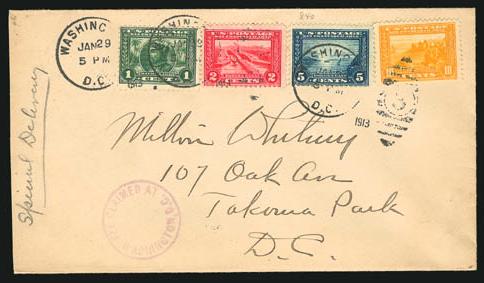 840
WASHING
JAN 29
5 PM
D.C.
1913
U.S. POSTAGE
1 CENT 1
U.S. POSTAGE
2 CENTS 2
U.S. POSTAGE
5 CENTS 5
U.S. POSTAGE
10
SHING
PM
D.C.
1913
Special Delivery
Milton Whitney
107 Oak Ave
Takoma Park
D.C.
CLAIMED AT
WASHINGTON, D.C.